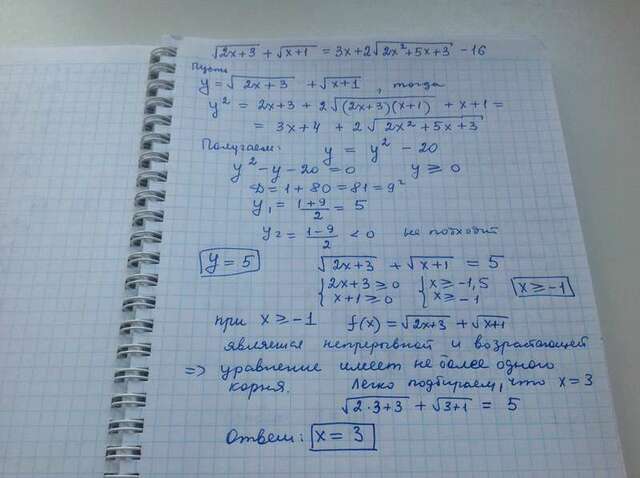 √(2x+3) + √(x+1) = 3x + 2√(2x²+5x+3) - 16
Пусть
y = √(2x+3) + √(x+1), тогда
y² = 2x+3 + 2√((2x+3)(x+1)) + x+1 =
= 3x+4 + 2√(2x²+5x+3)
Получаем: y = y² - 20
y² - y - 20 = 0 y ≥ 0
D = 1 + 80 = 81 = 9²
y₁ = (1+9)/2 = 5
y₂ = (1-9)/2 < 0 не подходит
y = 5 √(2x+3) + √(x+1) = 5
{2x+3 ≥ 0 {x ≥ -1,5
{x+1 ≥ 0 {x ≥ -1 x ≥ -1
при x ≥ -1 f(x) = √(2x+3) + √(x+1)
является непрерывной и возрастающей
=> уравнение имеет не более одного
корня. Легко подбираем, что x = 3
√(2·3+3) + √(3+1) = 5
Ответ: x = 3